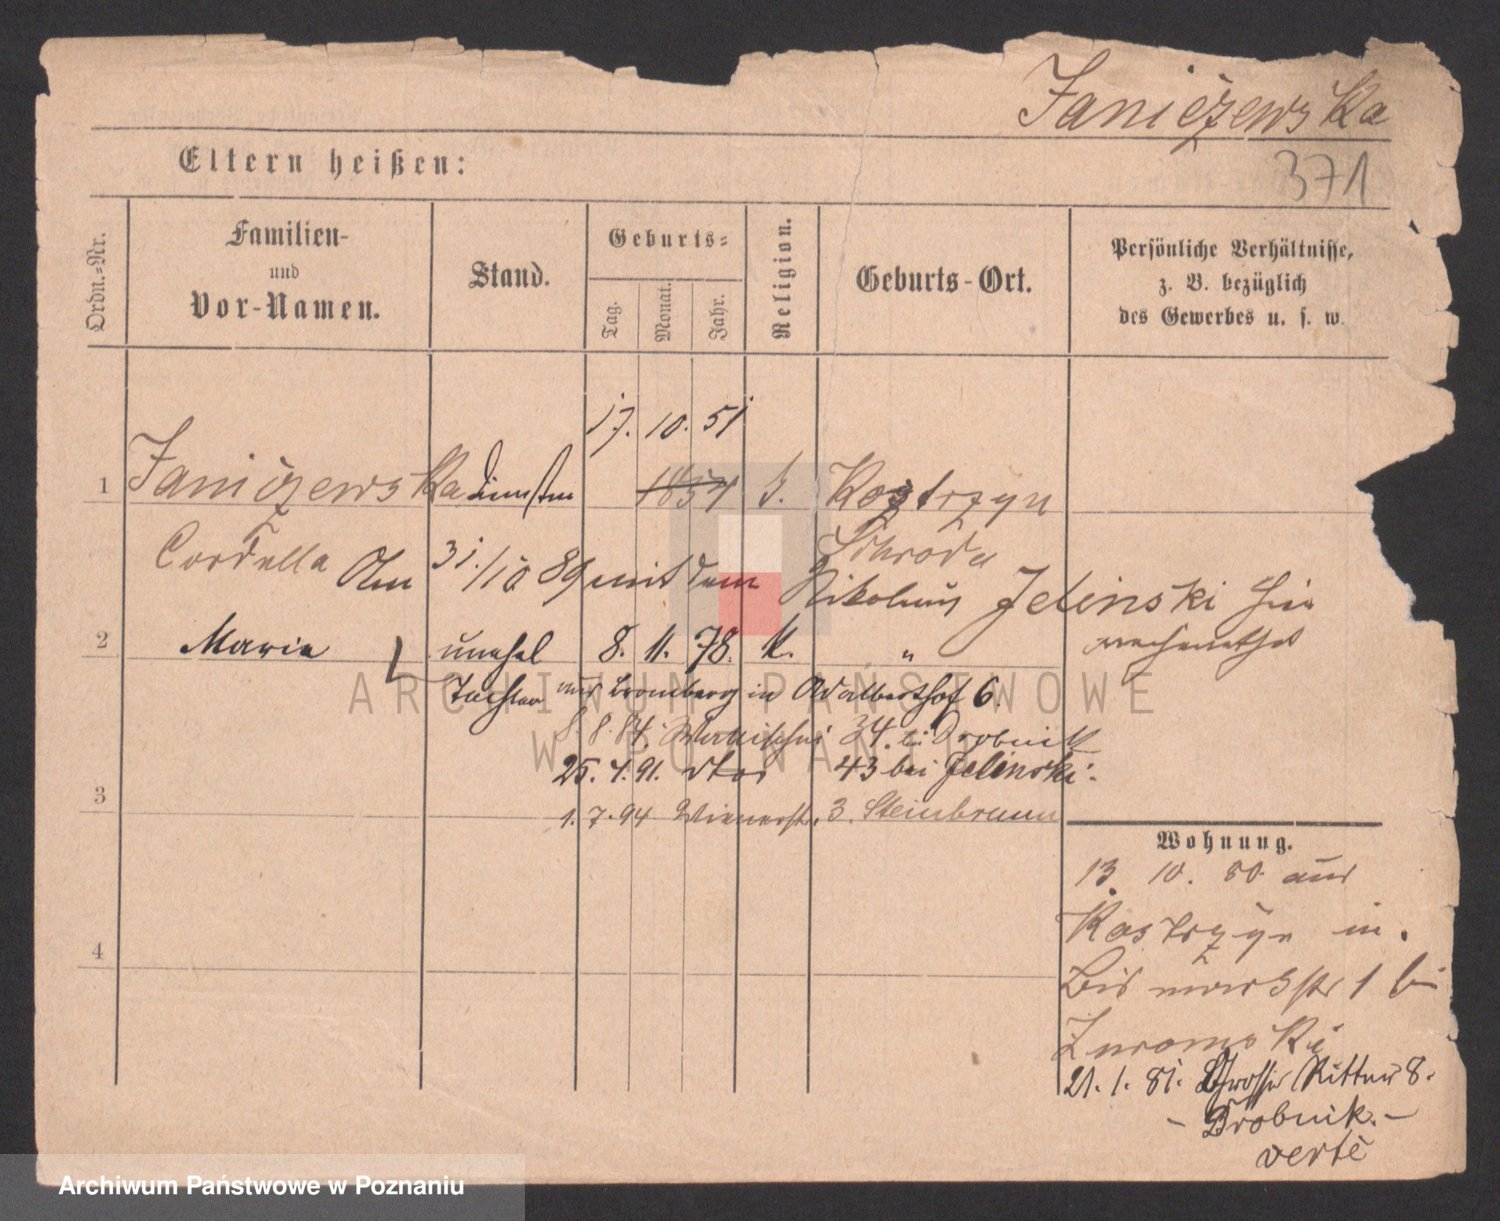 Janiczewska
371
Eltern heißen:
Ordn.=Nr.
Familien-
und
Vor-Namen.
Stand.
Geburts=
Tag.
Monat.
Jahr.
Religion.
Geburts-Ort.
Persönliche Verhältnisse,
z. B. bezüglich
des Gewerbes u. s. w.
17. 10. 51
1 Janiczewska 1854 k. Kostrzyn
Cordella Schroda
31./10 89 mit dem Nikolaus Jelinski hier
2 Marie unehel 8. 11. 78. k. "
Tochter aus Bromberg in Adalberthof 6.
8. 8. 84. Wallischei 34. bei Drobnik
25. 4. 91. dto 43 bei Jelinski.
3 1. 7. 94 Wienerstr. 3. Steinbrunn
4
Wohnung.
13. 10. 80 aus
Kostrzyn in
Bismarckstr 1 bei
Zuromski
21. 1. 81. Grosse Ritter 8.
- Drobnik. -
verte
ARCHIWUM PAŃSTWOWE
W POZNANIU
Archiwum Państwowe w Poznaniu